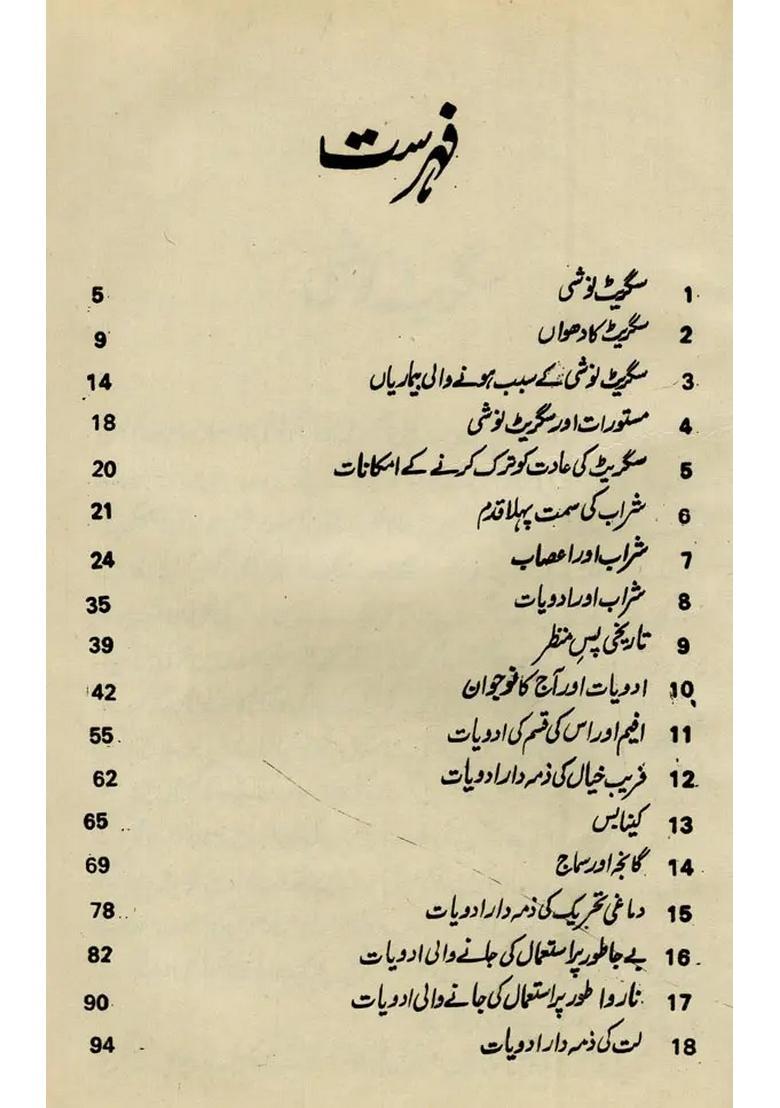 فہرست
1 سگریٹ نوشی 5
2 سگریٹ کا دھواں 9
3 سگریٹ نوشی کے سبب ہونے والی بیماریاں 14
4 مستورات اور سگریٹ نوشی 18
5 سگریٹ کی عادت کو ترک کرنے کے امکانات 20
6 شراب کی سمت پہلا قدم 21
7 شراب اور اعصاب 24
8 شراب اور ادویات 35
9 تاریخی پسِ منظر 39
10 ادویات اور آج کا نوجوان 42
11 افیم اور اس کی قسم کی ادویات 55
12 فریب خیال کی ذمہ دار ادویات 62
13 کینابس 65
14 گانجہ اور سماج 69
15 دماغی تحریک کی ذمہ دار ادویات 78
16 بے جا طور پر استعمال کی جانے والی ادویات 82
17 ناروا طور پر استعمال کی جانے والی ادویات 90
18 لت کی ذمہ دار ادویات 94